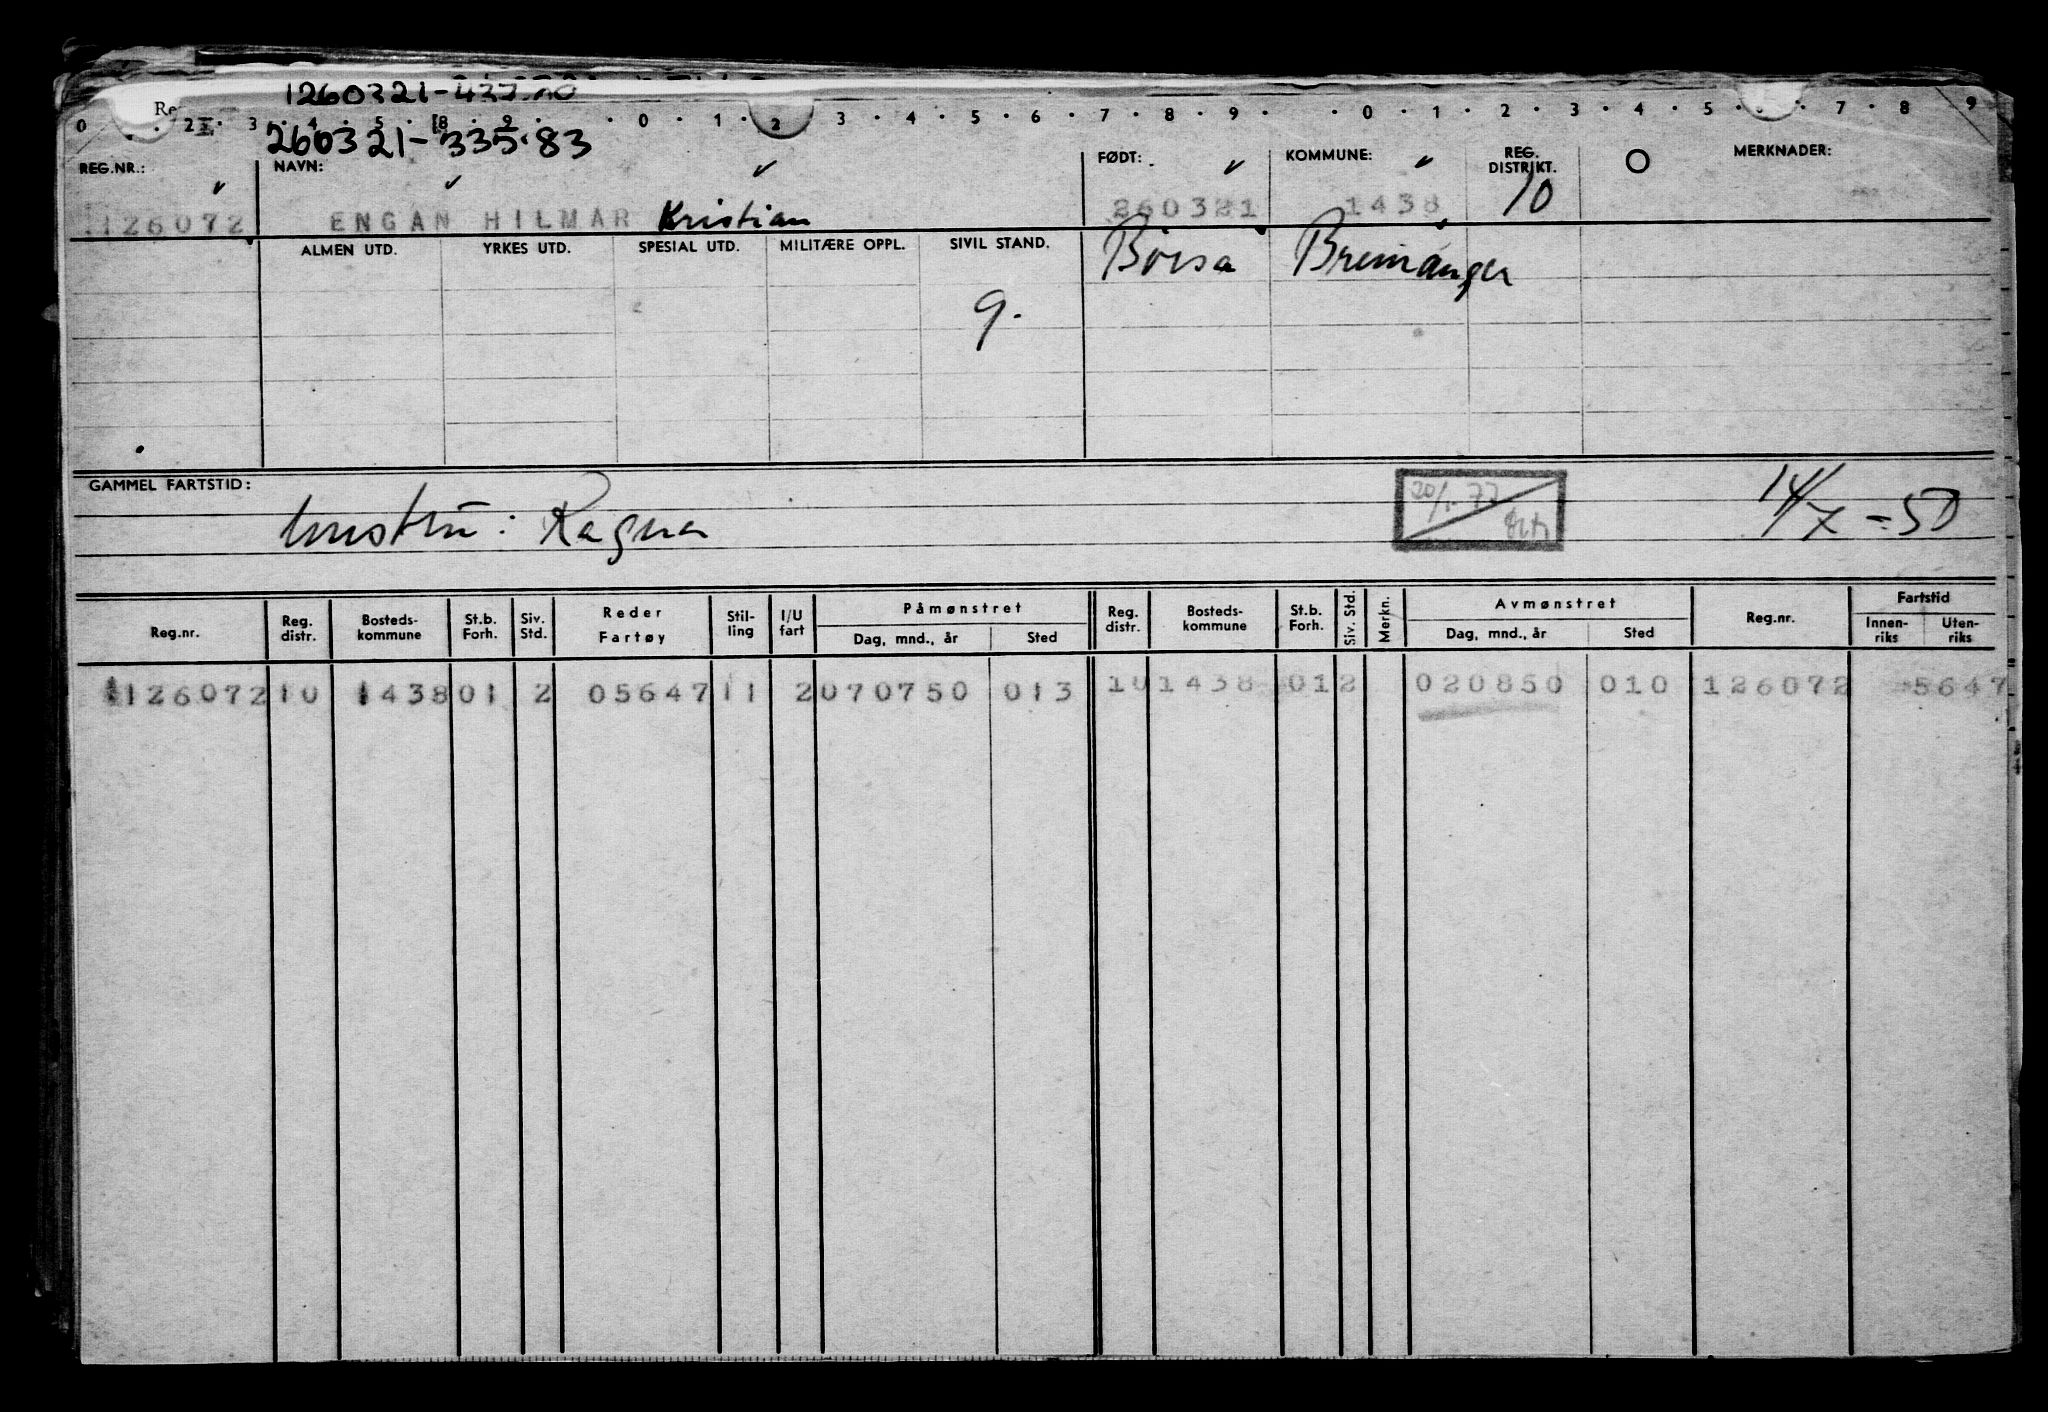 1260321-
Re
0 2 I 3 4 5 8 9 0 1 2 3 4 5 6 7 8 9 0 1 2 3 4 5 6 7 8 9
260321-335.83
REG.NR.: NAVN: FØDT: KOMMUNE: REG. DISTRIKT. MERKNADER:
126072 ENGAN HILMAR Kristian 260321 1438 10
ALMEN UTD. YRKES UTD. SPESIAL UTD. MILITÆRE OPPL. SIVIL STAND. Børsa Bremanger
9.
GAMMEL FARTSTID:
hustru: Ragna 20/1-77 14/X-50
Reg.nr. Reg. distr. Bosteds-kommune St.b. Forh. Siv. Std. Reder Fartøy Stil-ling I/U fart Påmønstret Dag, mnd., år Sted Reg. distr. Bosteds-kommune St.b. Forh. Siv. Std. Merkn. Avmønstret Dag, mnd., år Sted Reg.nr. Fartstid Innen-riks Uten-riks
126072 10 1438 01 2 05647 11 2 070750 013 10 1438 01 2 020850 010 126072 5647